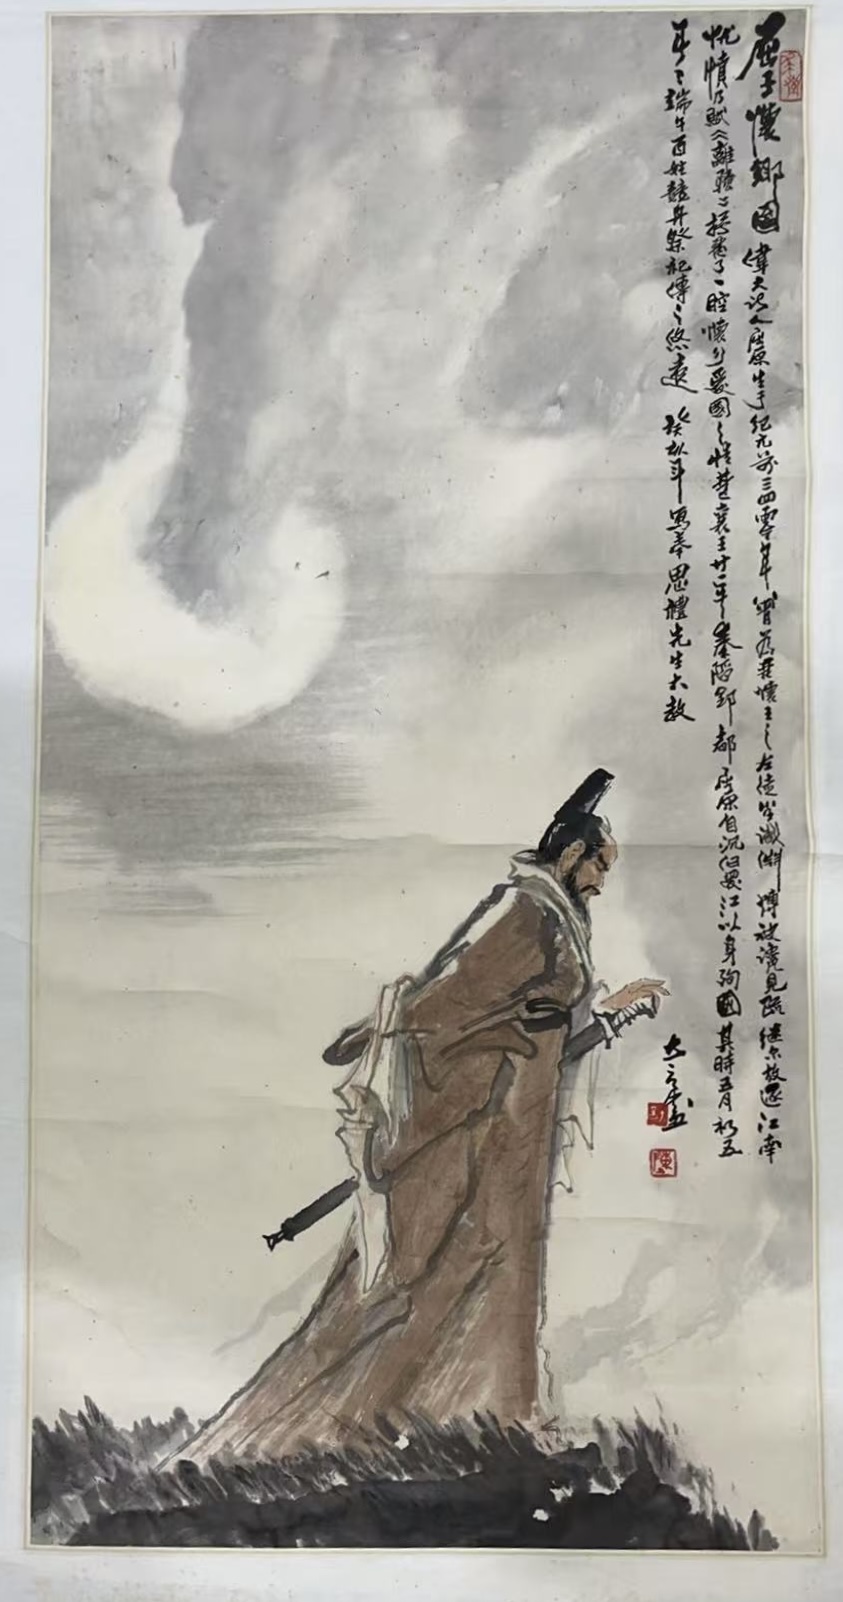 屈子懷鄉圖 偉大詩人屈原生于紀元前三四零年 曾為楚懷王之左徒 博被讒見疏 繼亦放逐江南
忧憤乃賦《離騷》抒發了一腔懷鄉愛國之情 楚襄王廿一年秦陷郢都 屈原自沉汨羅江以身殉國 其時五月初五
年年端午百姓競舟祭祀傳之悠遠 癸亥年 寫奉思禮先生大教